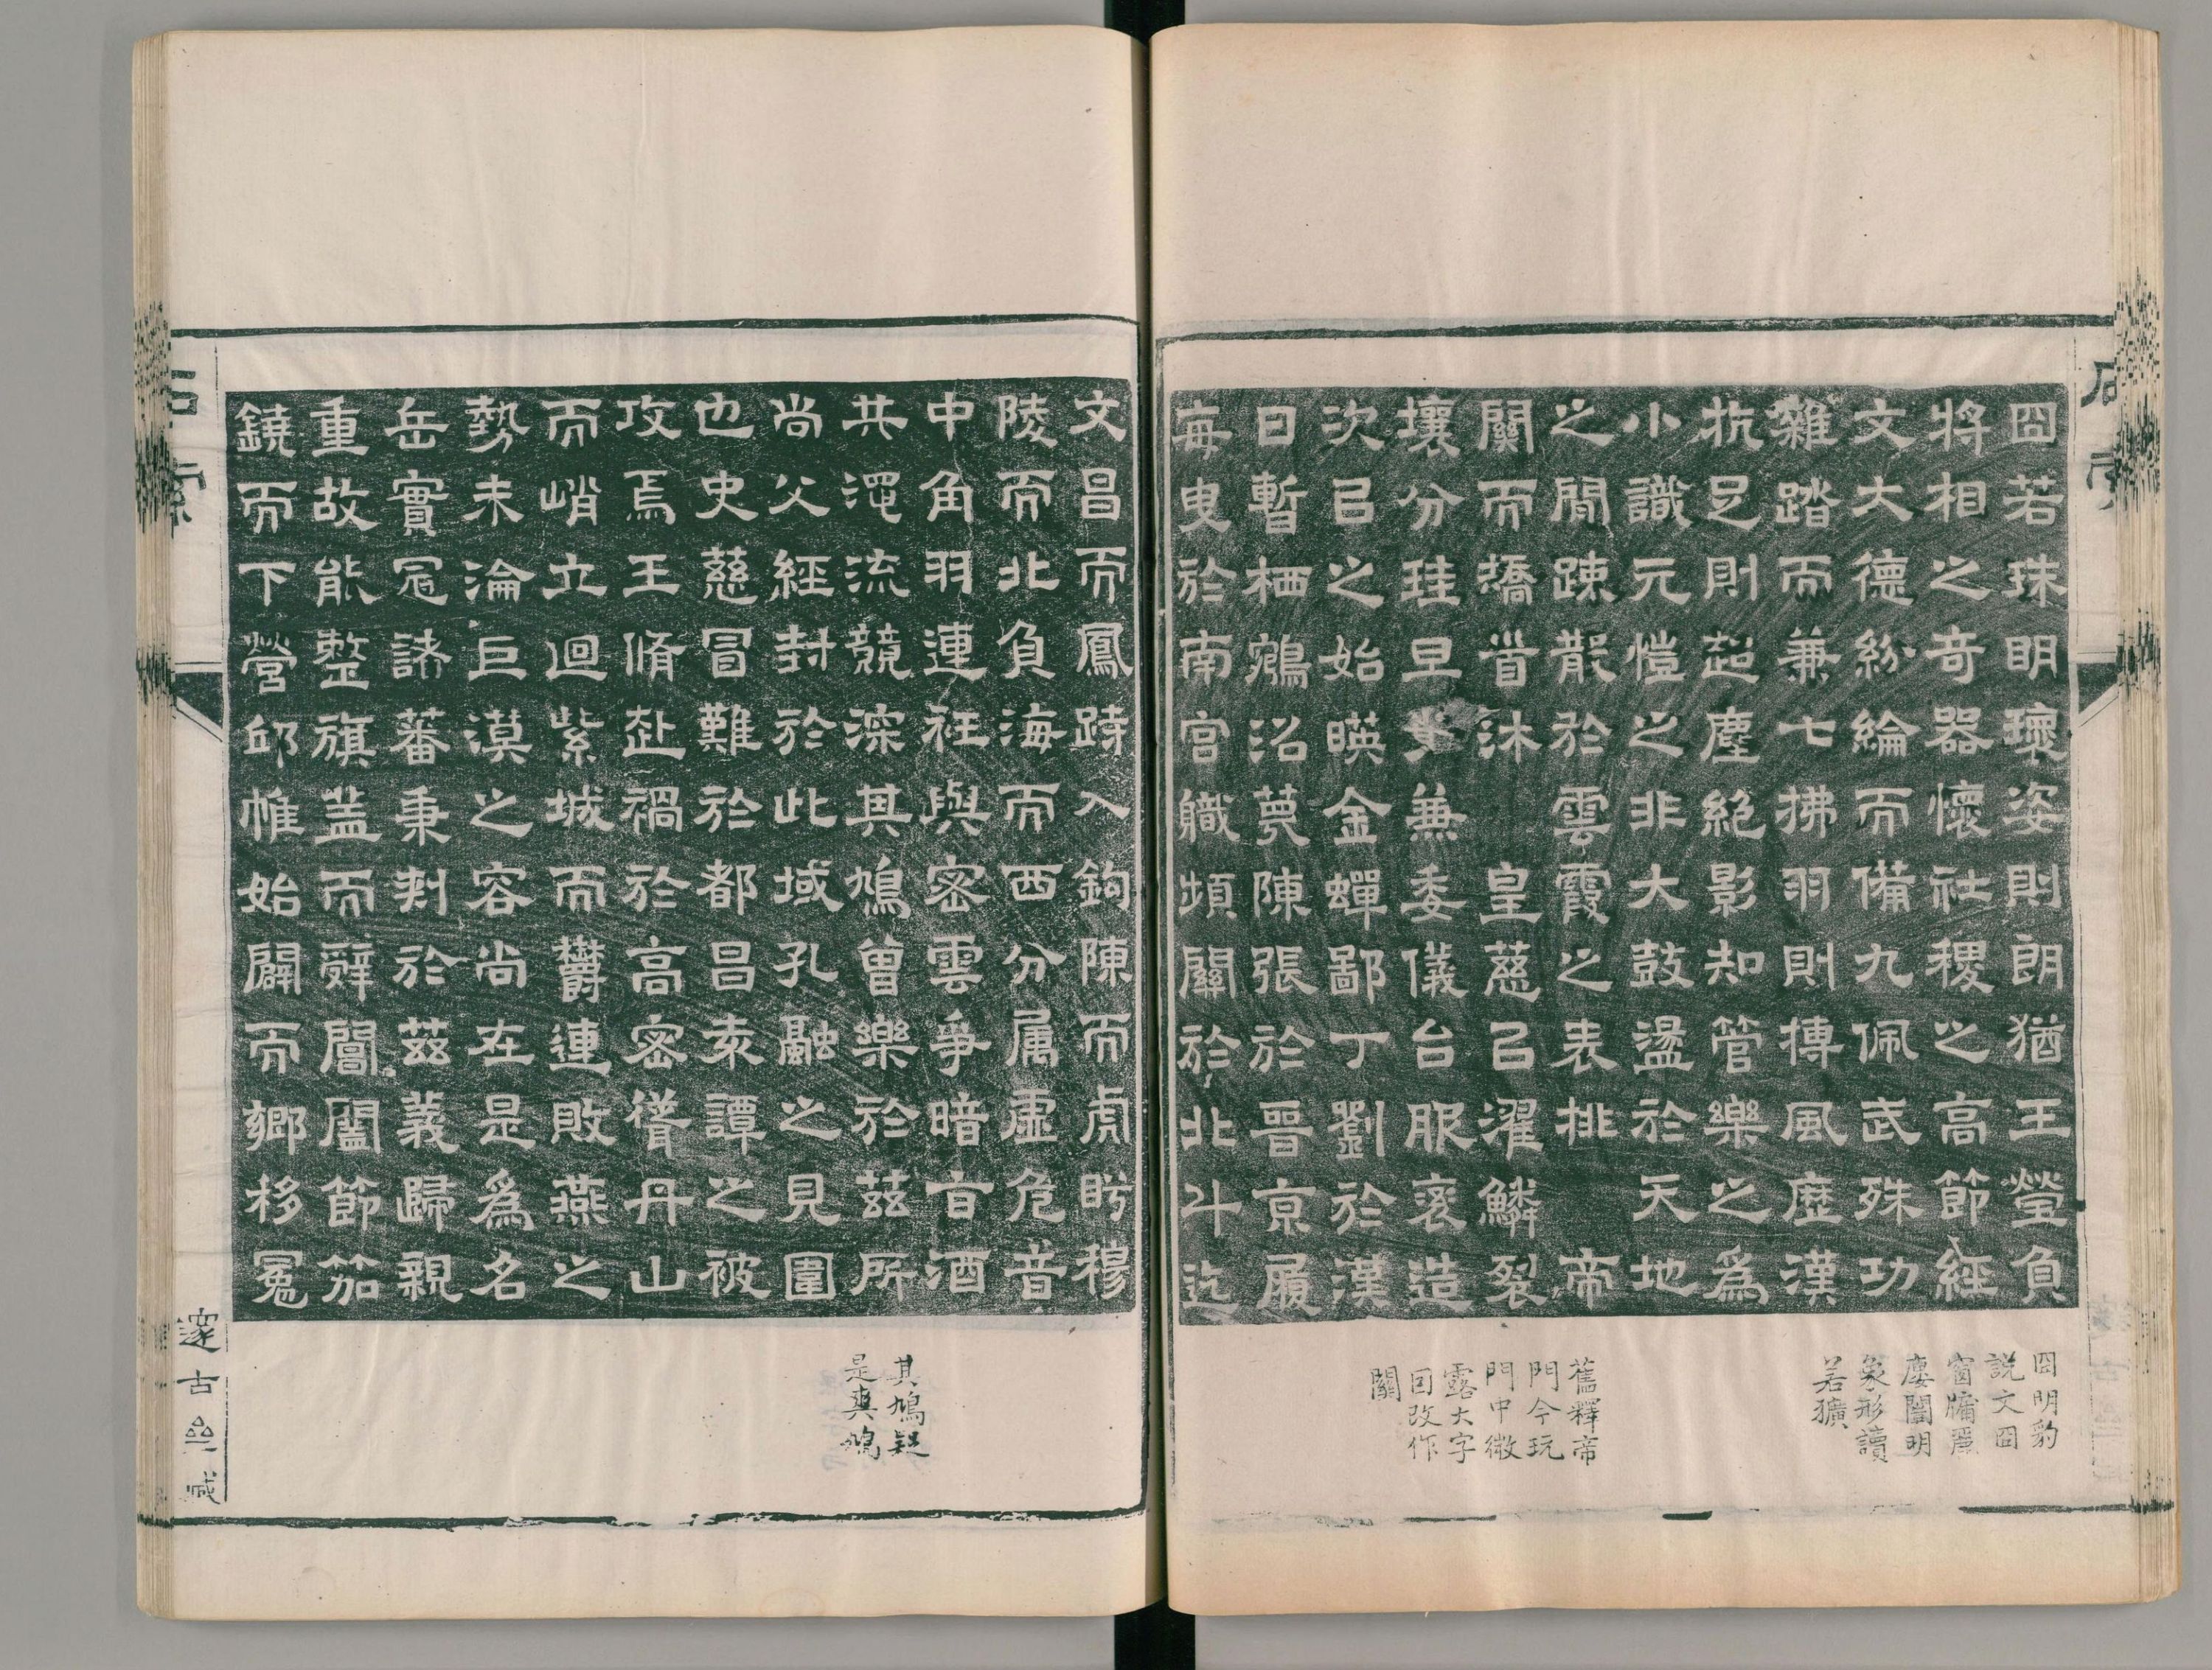 囧若珠明瓌姿則朗猶王瑩負
將相之奇器懷社稷之高節經
文大德紛綸而備九佩武殊功
雜踏而兼七拂羽則摶風歷漢
抗足則超塵絕影知管樂之爲
小識元愷之非大鼓盪於天地
之間踈散於雲霞之表排 帝
關而撟首沐 皇慈㠯濯鱗裂
壤分珪早 兼委儀台服衮造
次㠯之始暎金蟬鄙丁劉於漢
日暫栖鵷沼薨陳張於晉京履
每曳於南宫職頻關於北斗迄
囧明豹
説文囧
窗牖麗
廔闓明
象形讀
若獷
舊釋帝
門今玩
門中微
露大字
因改作
關
文昌而鳳跱入鉤陳而虎眄穆
陵而北負海而西分属虛危音
中角羽連衽與密雲爭暗旨酒
共澠流競深其鳩曾樂於茲所
尚父經封於此域孔融之見圍
也史慈冒難於都昌袁譚之被
攻焉王脩赴禍於高密聳丹山
而峭立迴紫城而欝連敗燕之
勢未淪巨漠之容尚在是爲名
岳實冠諸蕃秉刾於茲義歸親
重故能整旗葢而辭閶闔節笳
鐃而下營邱帷始闢而鄉移冤
其鳩疑
是爽鳩
石索
邃古𠫯